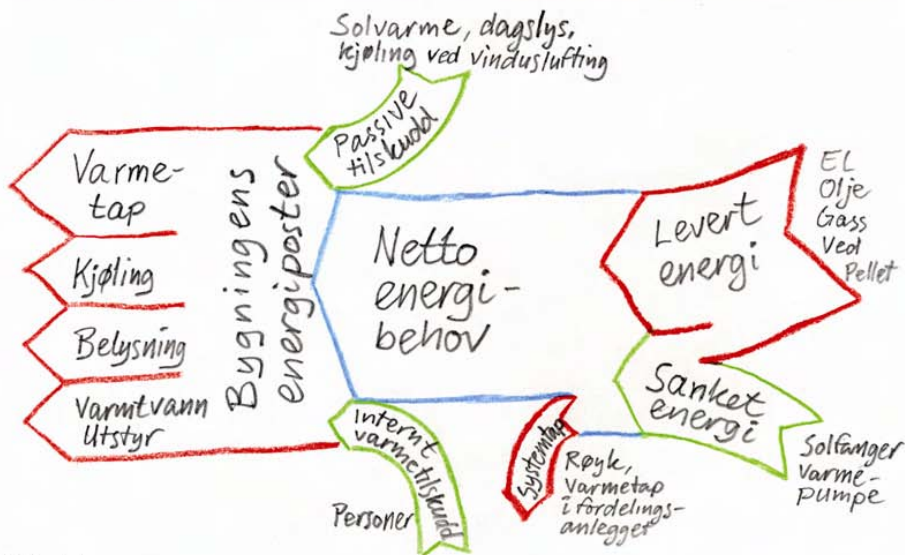 Solvarme, dagslys,
kjøling ved vinduslufting
Passive
tilskudd
Varme-
tap
Kjøling
Belysning
Varmtvann
Utstyr
Bygningens
energiposter
Netto
energi-
behov
Levert
energi
EL
Olje
Gass
Ved
Pellet
Sanket
energi
Solfanger
Varme-
pumpe
Internt
varmetilskudd
Personer
Systemtap
Røyk,
varmetap
i fordelings-
anlegget